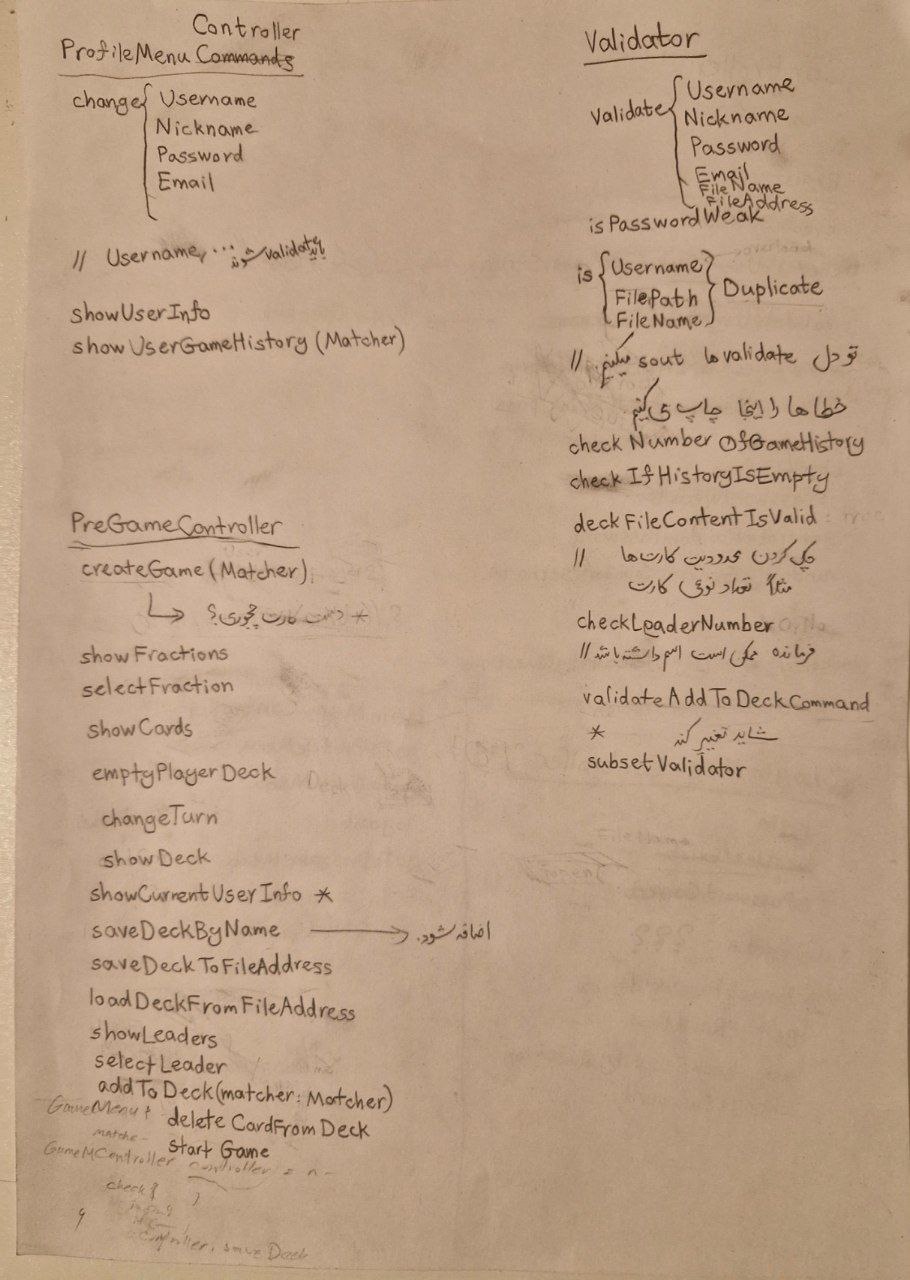 Controller
ProfileMenu Commands
change { Username
Nickname
Password
Email
// Username, ... باید validate شوند
showUserInfo
showUserGameHistory (Matcher)
PreGameController
createGame (Matcher)
* دست کارت چجوری؟
showFractions
selectFraction
showCards
emptyPlayerDeck
changeTurn
showDeck
showCurrentUserInfo *
saveDeckByName → اضافه شود.
saveDeckToFileAddress
loadDeckFromFileAddress
showLeaders
selectLeader
addToDeck(matcher: Matcher)
GameMenu
delete CardFromDeck
matche
start Game
GameMController controller = n
check
controller. save Deck
9
Validator
Validate { Username
Nickname
Password
Email
FileName
FileAddress
isPasswordWeak
is { Username
FilePath
FileName } Duplicate
// تو دل validate ها sout میکنیم.
خطا ها را اینجا چاپ می کنیم
checkNumberOfGameHistory
checkIfHistoryIsEmpty
deckFileContentIsValid
// چک کردن محدودیت کارت ها
مثلاً تعداد نوعی کارت
checkLeaderNumber
// فرمانده ممکن است اسم داشته باشد
validateAddToDeckCommand
* شاید تغییر کند
subsetValidator